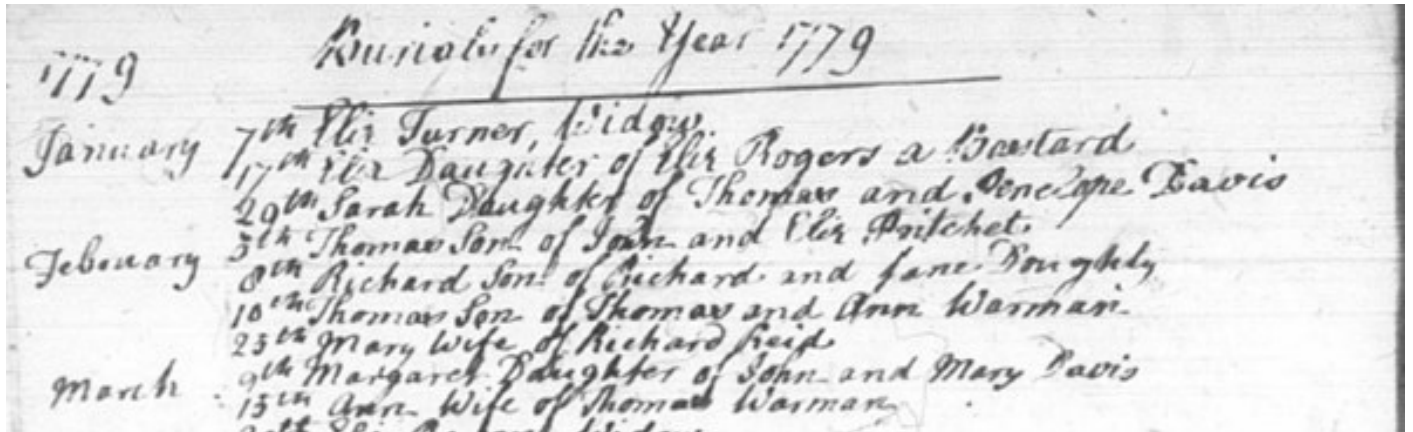 Burials for the Year 1779
1779
January 7th Eliz Turner, Widow
17th Eliz Daughter of Eliz Rogers a Bastard
29th Sarah Daughter of Thomas and Penelope Davis
February 5th Thomas Son of John and Eliz Pritchet
8th Richard Son of Richard and Jane Doughty
10th Thomas Son of Thomas and Ann Warman
25th Mary Wife of Richard Reid
March 9th Margaret Daughter of John and Mary Davis
15th Ann Wife of Thomas Warman
Eliz Widow